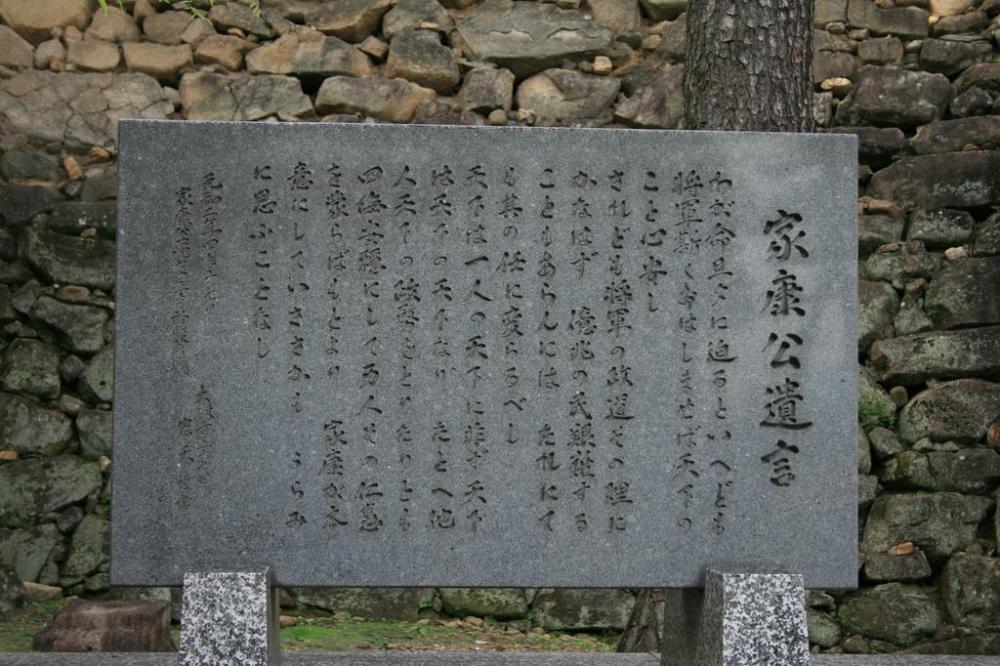 家康公遺言
わが命旦夕に迫るといへども
将軍斯くおはしませば天下の
こと心安し
されども将軍の政道その理に
かなはず 億兆の民艱難する
こともあらんには たれにて
も其の任に変らるべし
天下は一人の天下に非ず天下
は天下の天下なり たとへ他
人天下の政務をとりたりとも
四海安穏にして万人その仁恵
を蒙らばもとより 家康が本
意にしていささかも うらみ
に思ふことなし
元和二年四月